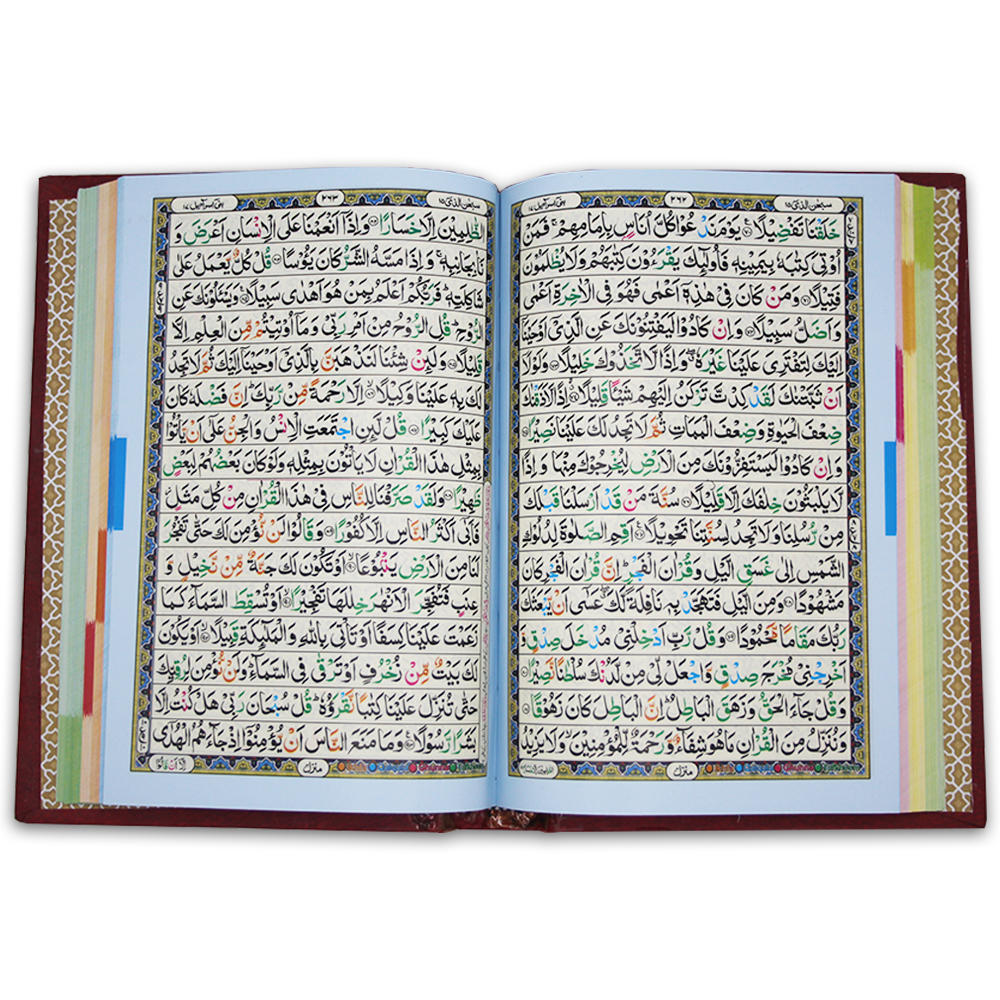 سبحٰن الذی ۱۵ ۲۶۲ بنی اسرآءیل ۱۷
خَلَقْنَا تَفْضِیْلًا۝۷۰ یَوْمَ نَدْعُوْا كُلَّ اُنَاسٍۭ بِاِمَامِهِمْ ۚ فَمَنْ
اُوْتِیَ كِتٰبَهٗ بِیَمِیْنِهٖ فَاُولٰٓىِٕكَ یَقْرَءُوْنَ كِتٰبَهُمْ وَلَا یُظْلَمُوْنَ
فَتِیْلًا۝۷۱ وَمَنْ كَانَ فِیْ هٰذِهٖۤ اَعْمٰی فَهُوَ فِی الْاٰخِرَةِ اَعْمٰی
وَاَضَلُّ سَبِیْلًا۝۷۲ وَاِنْ كَادُوْا لَیَفْتِنُوْنَكَ عَنِ الَّذِیْۤ اَوْحَیْنَاۤ
اِلَیْكَ لِتَفْتَرِیَ عَلَیْنَا غَیْرَهٗ ۖۗ وَاِذًا لَّاتَّخَذُوْكَ خَلِیْلًا۝۷۳ وَلَوْلَاۤ
اَنْ ثَبَّتْنٰكَ لَقَدْ كِدْتَّ تَرْكَنُ اِلَیْهِمْ شَیْـًٔا قَلِیْلًا۝۷۴ اِذًا لَّاَذَقْنٰكَ
ضِعْفَ الْحَیٰوةِ وَضِعْفَ الْمَمَاتِ ثُمَّ لَا تَجِدُ لَكَ عَلَیْنَا نَصِیْرًا۝۷۵
وَاِنْ كَادُوْا لَیَسْتَفِزُّوْنَكَ مِنَ الْاَرْضِ لِیُخْرِجُوْكَ مِنْهَا وَاِذًا
لَّا یَلْبَثُوْنَ خِلٰفَكَ اِلَّا قَلِیْلًا۝۷۶ سُنَّةَ مَنْ قَدْ اَرْسَلْنَا قَبْلَكَ
مِنْ رُّسُلِنَا وَلَا تَجِدُ لِسُنَّتِنَا تَحْوِیْلًا۝۷۷ اَقِمِ الصَّلٰوةَ لِدُلُوْكِ
الشَّمْسِ اِلٰی غَسَقِ الَّیْلِ وَقُرْاٰنَ الْفَجْرِ ؕ اِنَّ قُرْاٰنَ الْفَجْرِ كَانَ
مَشْهُوْدًا۝۷۸ وَمِنَ الَّیْلِ فَتَهَجَّدْ بِهٖ نَافِلَةً لَّكَ ۖۗ عَسٰۤی اَنْ یَّبْعَثَكَ
رَبُّكَ مَقَامًا مَّحْمُوْدًا۝۷۹ وَقُلْ رَّبِّ اَدْخِلْنِیْ مُدْخَلَ صِدْقٍ وَّ
اَخْرِجْنِیْ مُخْرَجَ صِدْقٍ وَّاجْعَلْ لِّیْ مِنْ لَّدُنْكَ سُلْطٰنًا نَّصِیْرًا۝۸۰
وَقُلْ جَآءَ الْحَقُّ وَزَهَقَ الْبَاطِلُ ؕ اِنَّ الْبَاطِلَ كَانَ زَهُوْقًا۝۸۱
وَنُنَزِّلُ مِنَ الْقُرْاٰنِ مَا هُوَ شِفَآءٌ وَّرَحْمَةٌ لِّلْمُؤْمِنِیْنَ ۙ وَلَا یَزِیْدُ
منزل
سبحٰن الذی ۱۵ ۲۶۳ بنی اسرآءیل ۱۷
الظّٰلِمِیْنَ اِلَّا خَسَارًا۝۸۲ وَاِذَاۤ اَنْعَمْنَا عَلَی الْاِنْسَانِ اَعْرَضَ وَ
نَاٰ بِجَانِبِهٖ ۚ وَاِذَا مَسَّهُ الشَّرُّ كَانَ یَـُٔوْسًا۝۸۳ قُلْ كُلٌّ یَّعْمَلُ عَلٰی
شَاكِلَتِهٖ ؕ فَرَبُّكُمْ اَعْلَمُ بِمَنْ هُوَ اَهْدٰی سَبِیْلًا۝۸۴ وَیَسْـَٔلُوْنَكَ عَنِ
الرُّوْحِ ؕ قُلِ الرُّوْحُ مِنْ اَمْرِ رَبِّیْ وَمَاۤ اُوْتِیْتُمْ مِّنَ الْعِلْمِ اِلَّا
قَلِیْلًا۝۸۵ وَلَىِٕنْ شِئْنَا لَنَذْهَبَنَّ بِالَّذِیْۤ اَوْحَیْنَاۤ اِلَیْكَ ثُمَّ لَا تَجِدُ
لَكَ بِهٖ عَلَیْنَا وَكِیْلًا۝۸۶ اِلَّا رَحْمَةً مِّنْ رَّبِّكَ ؕ اِنَّ فَضْلَهٗ كَانَ
عَلَیْكَ كَبِیْرًا۝۸۷ قُلْ لَّىِٕنِ اجْتَمَعَتِ الْاِنْسُ وَالْجِنُّ عَلٰۤی اَنْ یَّاْتُوْا
بِمِثْلِ هٰذَا الْقُرْاٰنِ لَا یَاْتُوْنَ بِمِثْلِهٖ وَلَوْ كَانَ بَعْضُهُمْ لِبَعْضٍ
ظَهِیْرًا۝۸۸ وَلَقَدْ صَرَّفْنَا لِلنَّاسِ فِیْ هٰذَا الْقُرْاٰنِ مِنْ كُلِّ مَثَلٍ ؗ
فَاَبٰۤی اَكْثَرُ النَّاسِ اِلَّا كُفُوْرًا۝۸۹ وَقَالُوْا لَنْ نُّؤْمِنَ لَكَ حَتّٰی تَفْجُرَ
لَنَا مِنَ الْاَرْضِ یَنْۢبُوْعًا۝۹۰ اَوْ تَكُوْنَ لَكَ جَنَّةٌ مِّنْ نَّخِیْلٍ وَّ
عِنَبٍ فَتُفَجِّرَ الْاَنْهٰرَ خِلٰلَهَا تَفْجِیْرًا۝۹۱ اَوْ تُسْقِطَ السَّمَآءَ كَمَا
زَعَمْتَ عَلَیْنَا كِسَفًا اَوْ تَاْتِیَ بِاللّٰهِ وَالْمَلٰٓىِٕكَةِ قَبِیْلًا۝۹۲ اَوْ یَكُوْنَ
لَكَ بَیْتٌ مِّنْ زُخْرُفٍ اَوْ تَرْقٰی فِی السَّمَآءِ ؕ وَلَنْ نُّؤْمِنَ لِرُقِیِّكَ
حَتّٰی تُنَزِّلَ عَلَیْنَا كِتٰبًا نَّقْرَؤُهٗ ؕ قُلْ سُبْحَانَ رَبِّیْ هَلْ كُنْتُ اِلَّا
بَشَرًا رَّسُوْلًا۝۹۳ وَمَا مَنَعَ النَّاسَ اَنْ یُّؤْمِنُوْۤا اِذْ جَآءَهُمُ الْهُدٰۤی
منزل
اِلَّاۤ اَنْ قَالُوْۤا